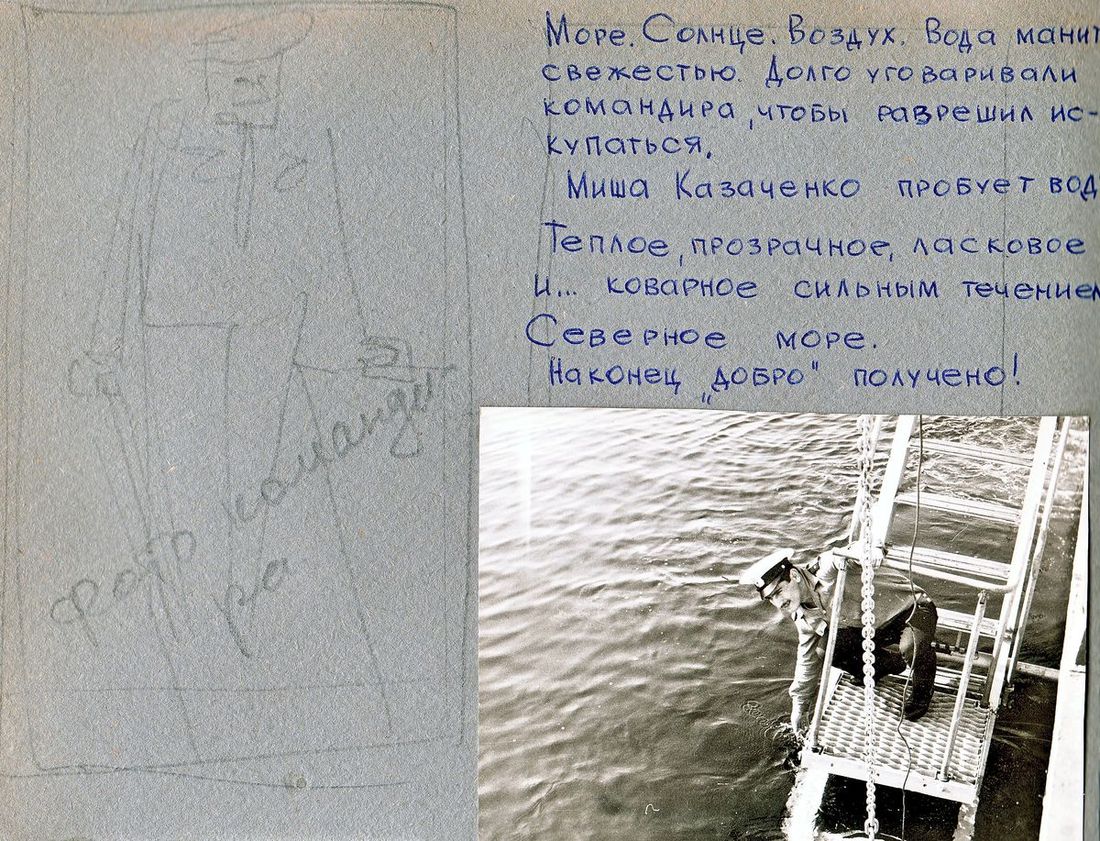 Море. Солнце. Воздух. Вода манит
свежестью. Долго уговаривали
командира, чтобы разрешил ис-
купаться.
Миша Казаченко пробует вод
Теплое, прозрачное, ласковое
и... коварное сильным течением
Северное море.
Наконец „добро" получено!
Фото команди
ра